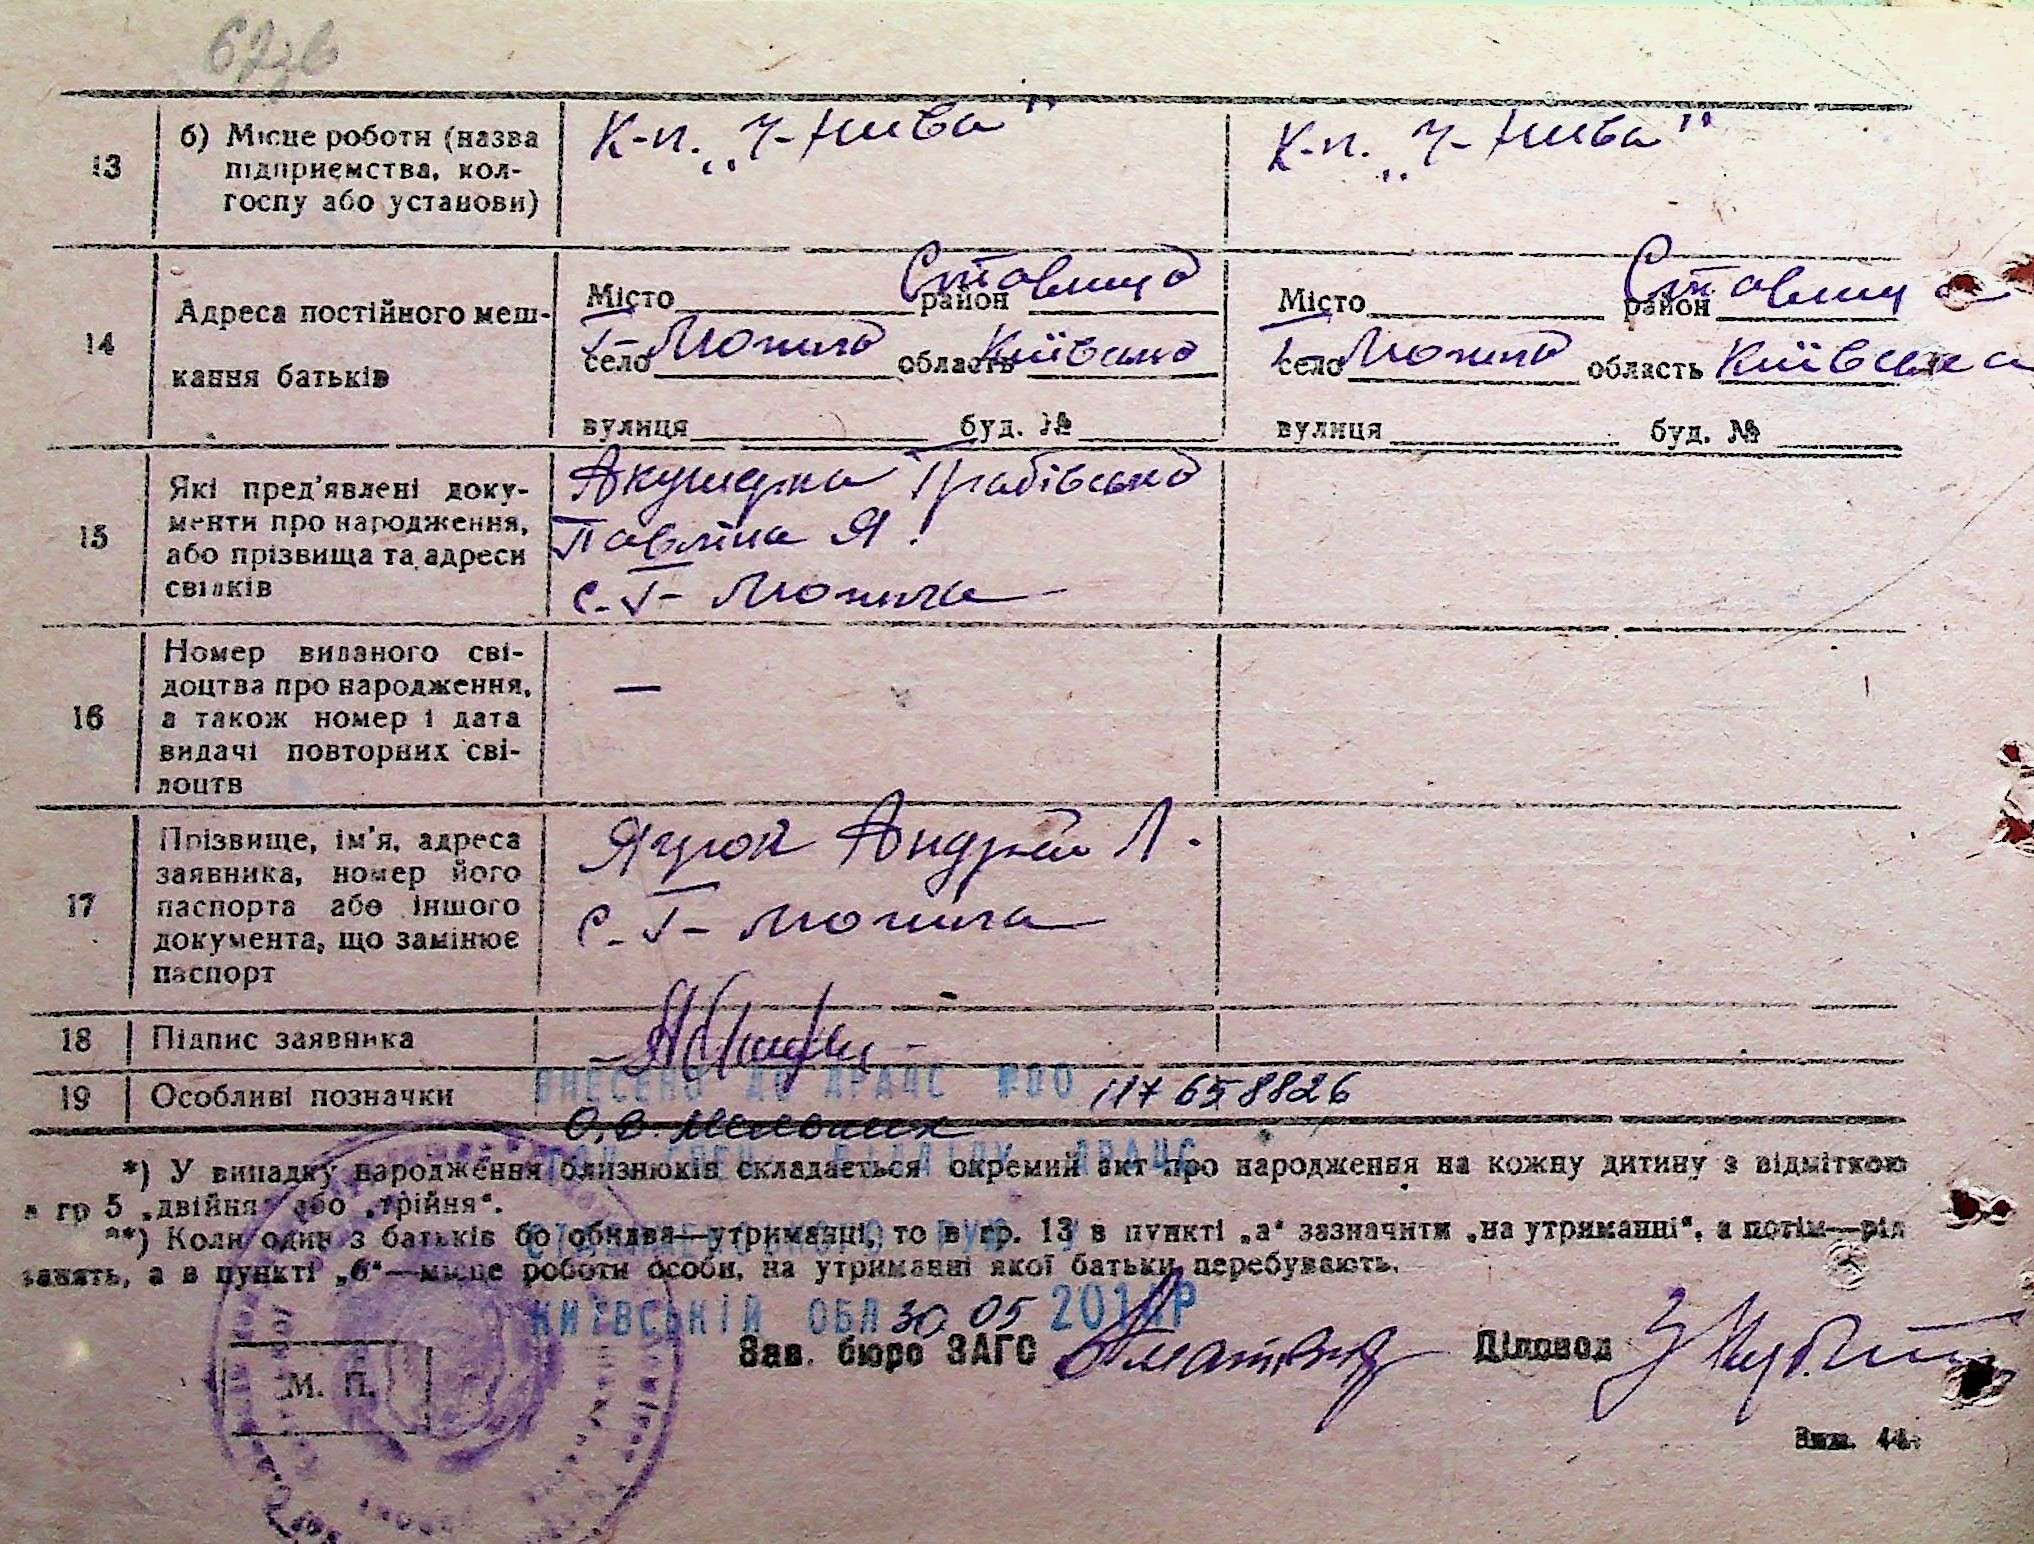 67зв
13 б) Місце роботи (назва підприємства, колгоспу або установи)
К-п. „Ч-Нива" К-п. „Ч-Нива"
14 Адреса постійного мешкання батьків
Місто район Ставища Місто район Ставища
село Г-Могила область Київська село Г-Могила область Київська
вулиця буд. № вулиця буд. №
15 Які пред'явлені документи про народження, або прізвища та адреси свідків
Акушерка Грабівська
Павліна Я.
с. Г- Могила
16 Номер виданого свідоцтва про народження, а також номер і дата видачі повторних свідоцтв
—
17 Прізвище, ім'я, адреса заявника, номер його паспорта або іншого документа, що замінює паспорт
Андрій Л.
с. Г- Могила
18 Підпис заявника
19 Особливі позначки
ВНЕСЕНО ДО ДРАЦС №00 117658826
О.В. Мельник
ВІДДІЛУ ДРАЦС
*) У випадку народження близнюків складається окремий акт про народження на кожну дитину з відміткою
в гр 5 „двійня" або „трійня".
**) Коли один з батьків бо обидва—утриманці, то в гр. 13 в пункті „а" зазначити „на утриманні", а потім—рід
занять, а в пункті „б"—місце роботи особи, на утриманні якої батьки перебувають.
КИЇВСЬКІЙ ОБЛ 30 05
М. П.
Зав. бюро ЗАГС Діловод
Зам.